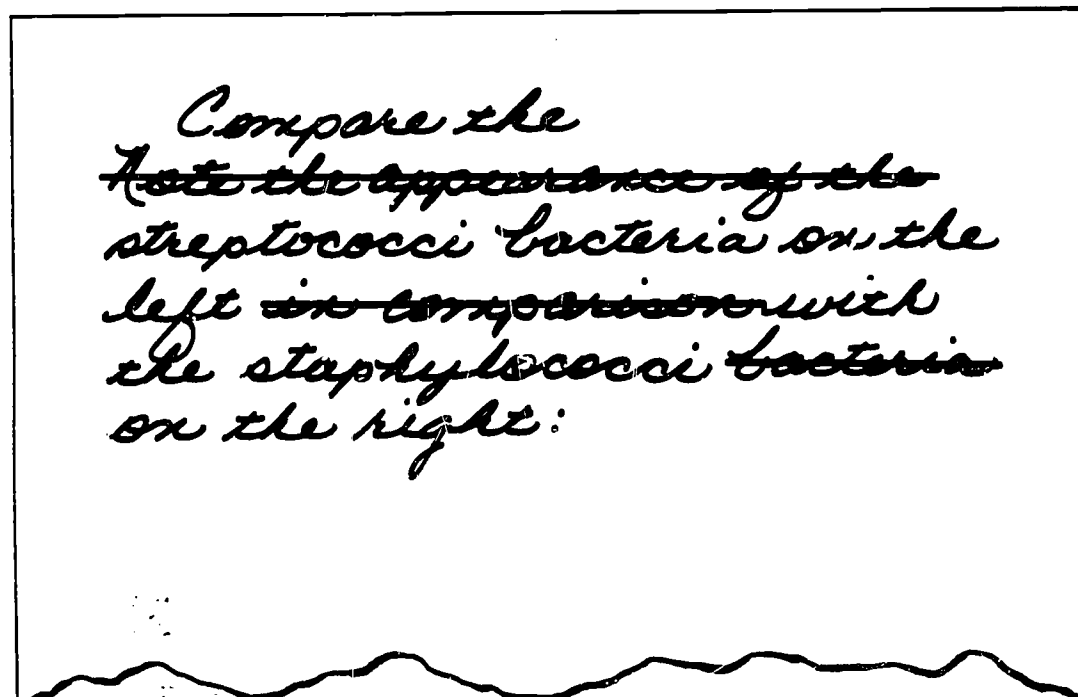 Compare the
Note the appearance of the
streptococci bacteria on the
left in comparison with
the staphylococci bacteria
on the right: